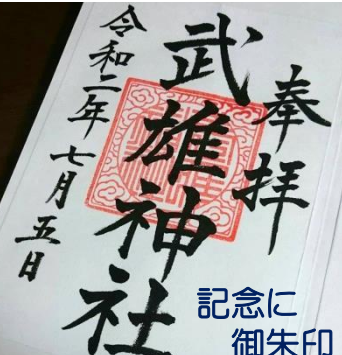 奉拝
武雄神社
令和二年七月五日
記念に
御朱印